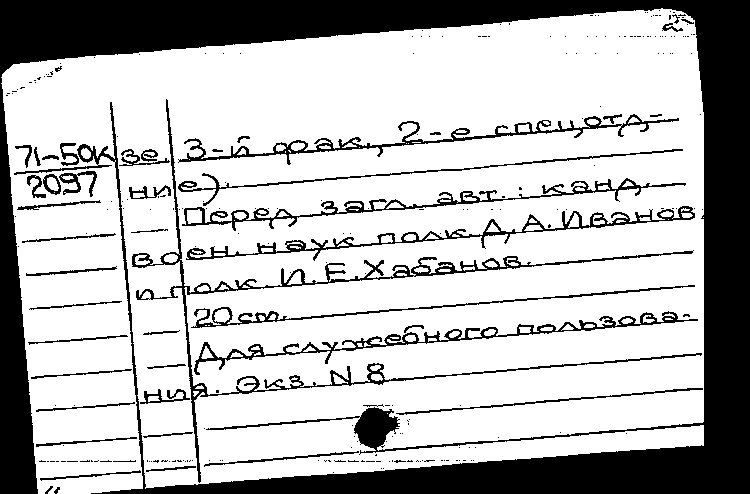 2
71-50к зе. 3-й фак., 2-е спецотд-
2097 ние).
Перед загл. авт.: канд.
воен. наук полк. Д.А. Иванов
и полк. И.Е. Хабанов.
20 cm.
Для служебного пользова-
ния. Экз. N 8